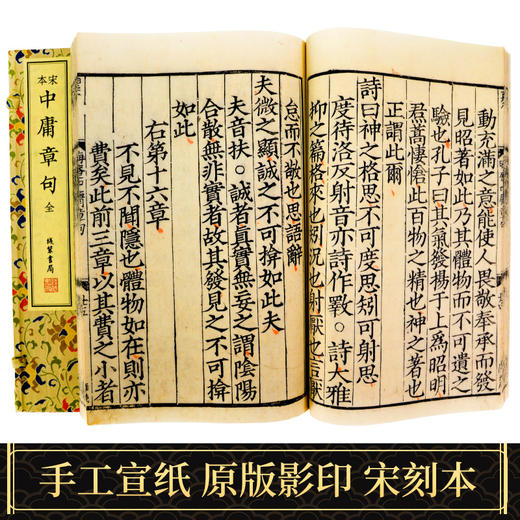 宋本
中庸章句 全
綫裝書局
動充滿之意能使人畏敬奉承而發
見昭著如此乃其體物而不可遺之
驗也孔子曰其氣發揚于上爲昭明
焄蒿悽愴此百物之精也神之著也
正謂此爾
詩曰神之格思不可度思矧可射思
度待洛反射音亦詩作斁○詩大雅
抑之篇格來也矧況也射厭也言厭
怠而不敬也思語辭
夫微之顯誠之不可揜如此夫
夫音扶○誠者真實無妄之謂陰陽
合散無非實者故其發見之不可揜
如此
右第十六章
不見不聞隱也體物如在則亦
費矣此前三章以其費之小者
手工宣纸 原版影印 宋刻本